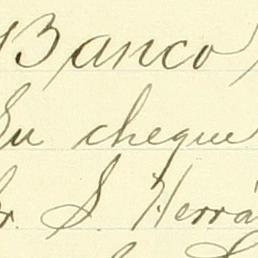 Banco
Su cheque
Sr. S. Herrá